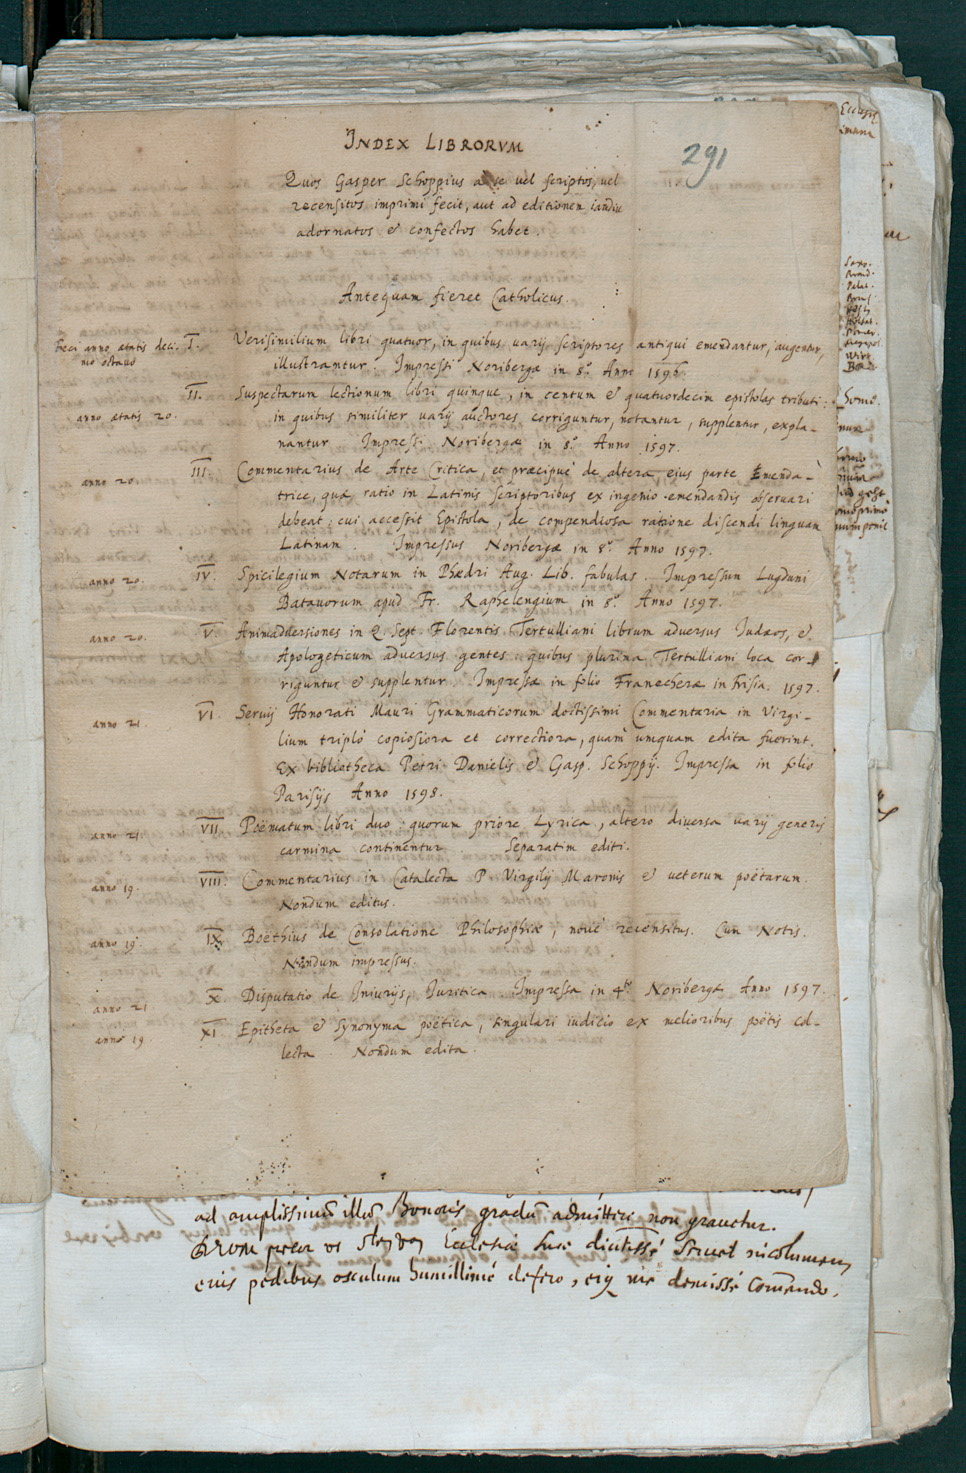 291
INDEX LIBRORVM
Quos Gasper Schoppius a se uel scriptos, uel
recensitos imprimi fecit, aut ad editionem iandiu
adornatos & confectos habet.
Antequam fieret Catholicus.
Feci anno ætatis deci- I. Verisimilium libri quatuor, in quibus varij scriptores antiqui emendantur, augentur,
mo octauo illustrantur. Impressi Noribergæ in 8.º Anno 1596.
II. Suspectarum lectionum libri quinque, in centum & quatuordecim epistolas tributi:
anno ætatis 20. in quibus similiter varij auctores corriguntur, notantur, supplentur, expla-
nantur. Impressi Noribergæ in 8.º Anno 1597.
anno 20. III. Commentarius de Arte Critica, et præcipuè de altera ejus parte Emenda-
trice, quæ ratio in Latinis scriptoribus ex ingenio emendandis obseruari
debeat: cui accessit Epistola, de compendiosa ratione discendi linguam
Latinam. Impressus Noribergæ in 8.º Anno 1597.
anno 20. IV. Spicilegium Notarum in Phædri Aug. Lib. fabulas. Impressum Lugduni
Batauorum apud Fr. Raphelengium in 8.º Anno 1597.
anno 20. V. Animaduersiones in Q. Sept. Florentis Tertulliani librum aduersus Iudæos, &
Apologeticum aduersus gentes: quibus plurima Tertulliani loca cor-
riguntur & supplentur. Impressæ in folio Franecheræ in Frisia. 1597.
anno 21. VI. Seruij Honorati Mauri Grammaticorum doctissimi Commentaria in Virgi-
lium triplo copiosiora et correctiora, quam umquam edita fuerint.
Ex bibliotheca Petri Danielis & Gasp. Schoppij. Impressa in folio
Parisijs Anno 1598.
anno 21. VII. Poëmatum libri duo: quorum priore Lyrica, altero diuersa varij generis
carmina continentur. Separatim editi.
anno 19. VIII. Commentarius in Catalecta P. Virgilij Maronis & ueterum poëtarum.
Nondum editus.
anno 19. IX. Boëthius de Consolatione Philosophiæ, nouè recensitus. Cum Notis.
Nondum impressus.
anno 21 X. Disputatio de Iniurijs, Iuritica. Impressa in 4.to Noribergæ Anno 1597.
anno 19. XI. Epitheta & Synonyma poëtica, singulari iudicio ex melioribus poëtis col-
lecta. Nondum edita.
ad amplissimū illū Honoris gradū admittere non grauetur.
precor Ecclesiæ suæ seruet incolumem,
eius pedibus osculum humillimè defero, eiq; me demissè comendo.